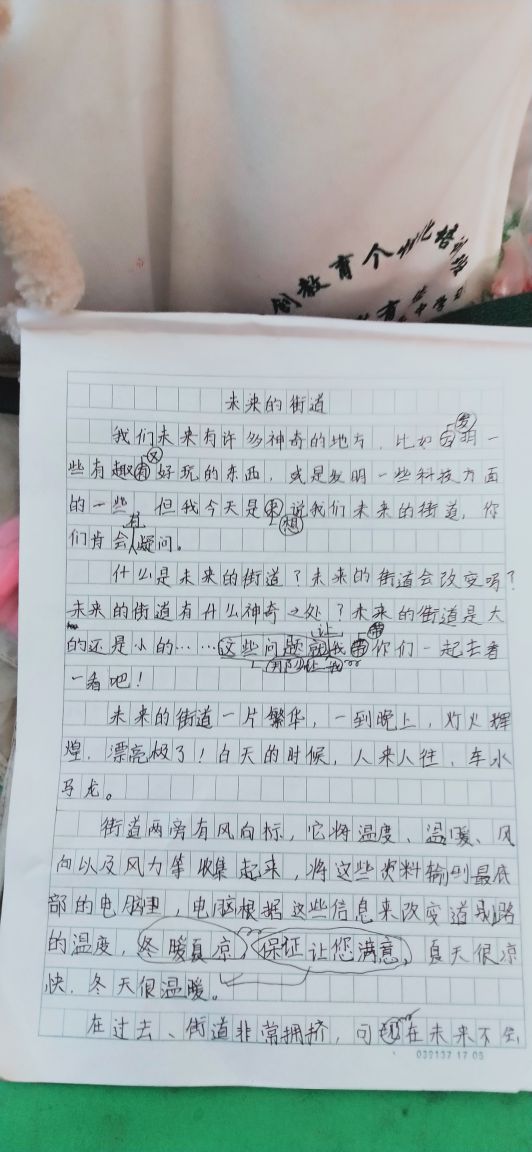 创教育个性化培训
育
中学
未来的街道
我们未来有许多神奇的地方，比如发明一
些有趣又好玩的东西，或是发明一些科技方面
的一些，但我今天是想说我们未来的街道，你
们肯会有疑问。
什么是未来的街道？未来的街道会改变吗？
未来的街道有什么神奇之处？未来的街道是大
的还是小的……这些问题就让我带你们一起去看
那么让我
一看吧！
未来的街道一片繁华，一到晚上，灯火辉
煌，漂亮极了！白天的时候，人来人往，车水
马龙。
街道两旁有风向标，它将温度、温暖、风
向以及风力等收集起来，将这些资料输到最底
部的电脑里，电脑根据这些信息来改变道路
的温度，冬暖夏凉，保证让您满意，夏天很凉
快，冬天很温暖。
在过去、街道非常拥挤，可在未来不会